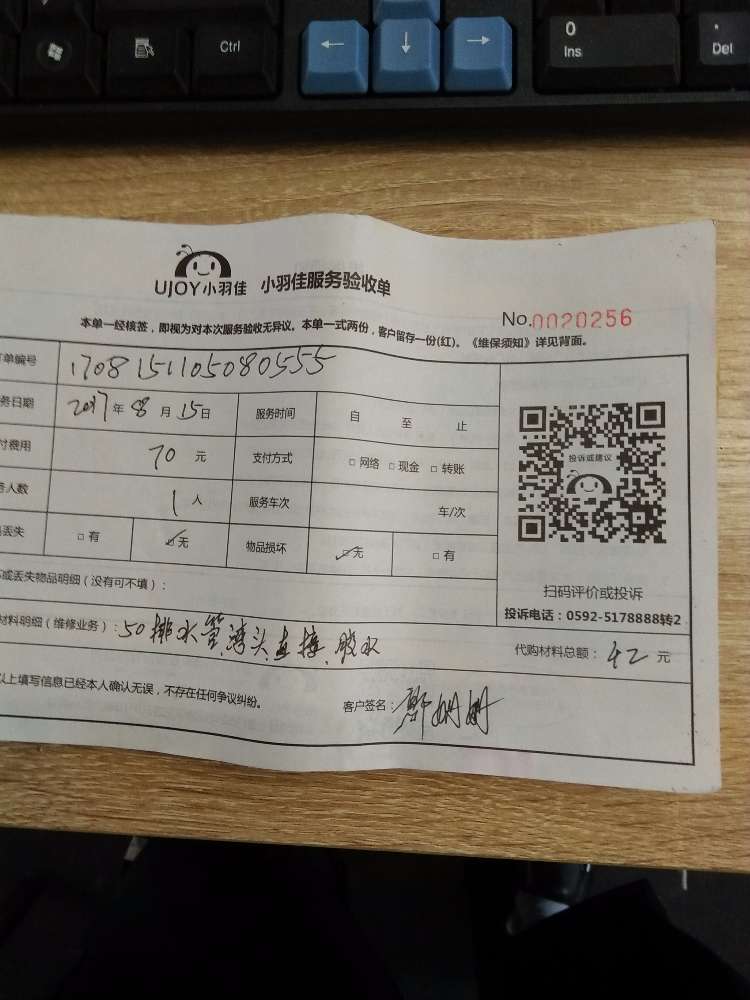 Ctrl
← ↓ →
0
Ins
.
Del
UJOY小羽佳 小羽佳服务验收单
No.0020256
本单一经核签，即视为对本次服务验收无异议。本单一式两份，客户留存一份(红)。《维保须知》详见背面。
单编号 170815110508055​5
务日期 2017年 8月 15日 服务时间 自 至 止
付费用 70 元 支付方式 □ 网络 □ 现金 □ 转账
人数 1 人 服务车次 车/次
丢失 □ 有 ☑无 物品损坏 ☑无 □ 有
投诉或建议
或丢失物品明细（没有可不填）：
扫码评价或投诉
投诉电话：0592-5178888转2
材料明细（维修业务）：50排水管.湾头.直接.胶水
代购材料总额：42 元
以上填写信息已经本人确认无误，不存在任何争议纠纷。
客户签名：